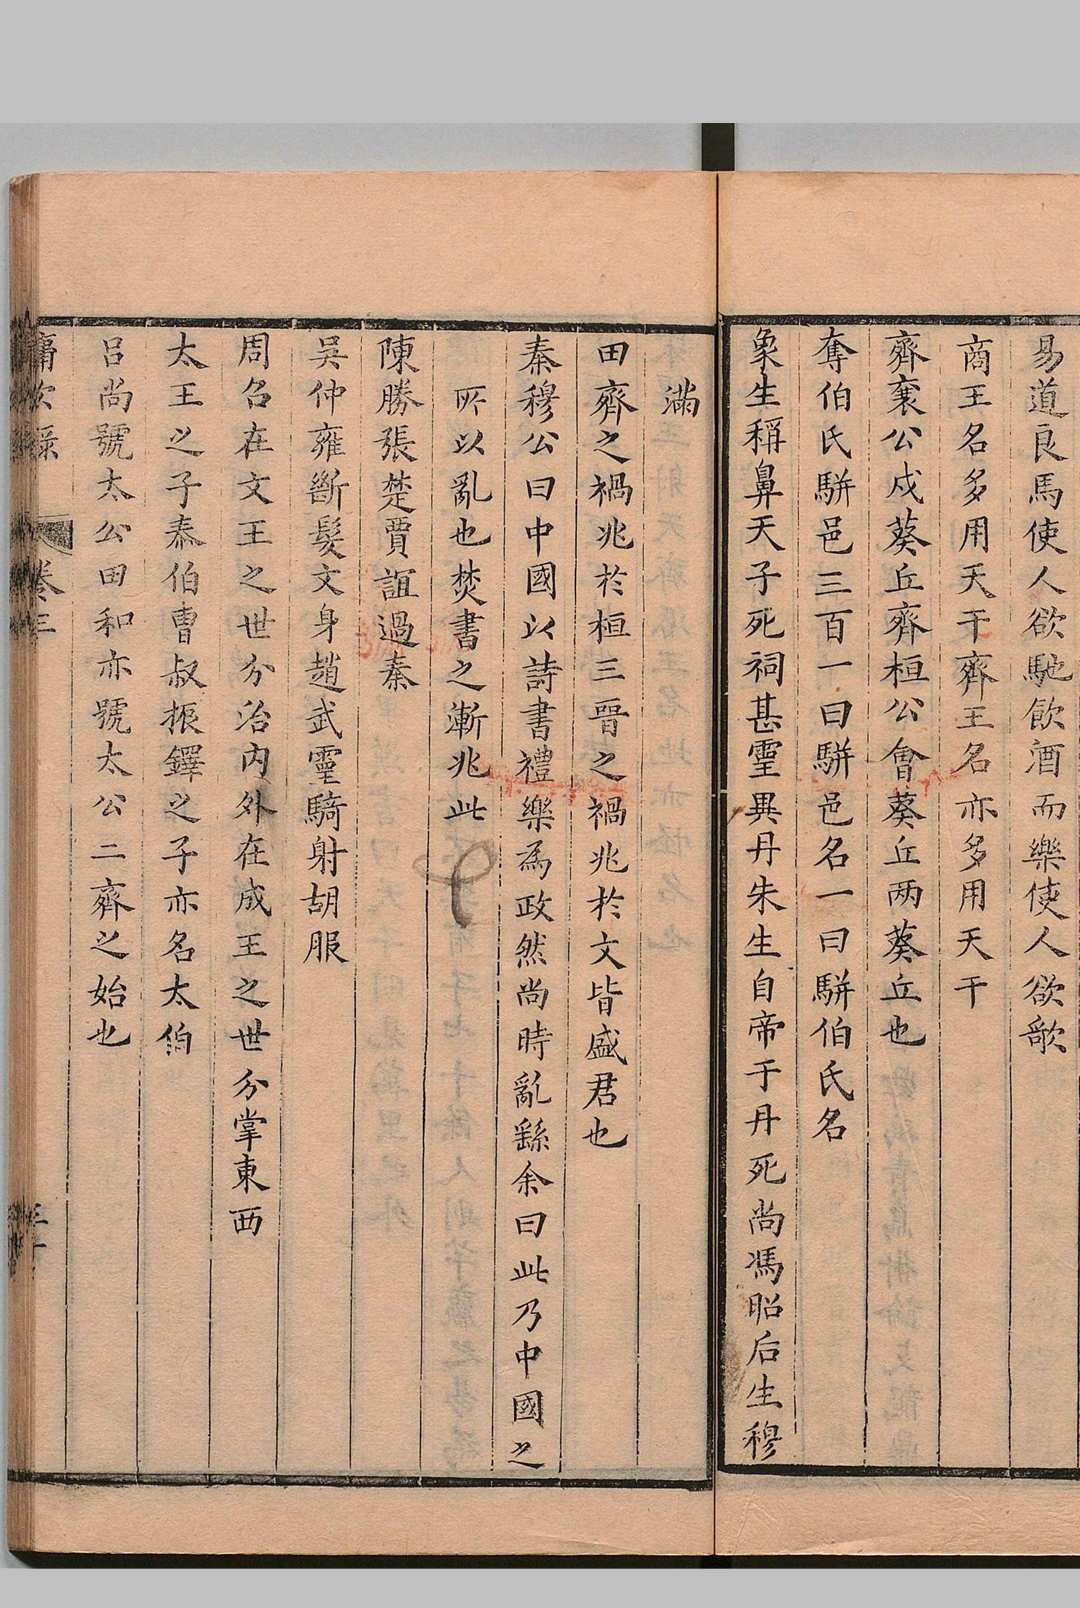 易道良馬使人欲馳飲酒而樂使人欲歌
商王名多用天干齊王名亦多用天干
齊襄公戍葵丘齊桓公會葵丘两葵丘也
奪伯氏駢邑三百一曰駢邑名一曰駢伯氏名
象生稱鼻天子死祠甚霊異丹朱生自帝于丹死尚馮昭后生穆
滿
田齊之禍兆於桓三晉之禍兆於文皆盛君也
秦穆公曰中國以詩書禮樂為政然尚時亂繇余曰此乃中國之
所以亂也焚書之漸兆此
陳勝張楚賈誼過秦
吳仲雍斷髮文身趙武霊騎射胡服
周召在文王之世分治内外在成王之世分掌東西
太王之子泰伯曹叔振鐸之子亦名太伯
呂尚號太公田和亦號太公二齊之始也
卷三